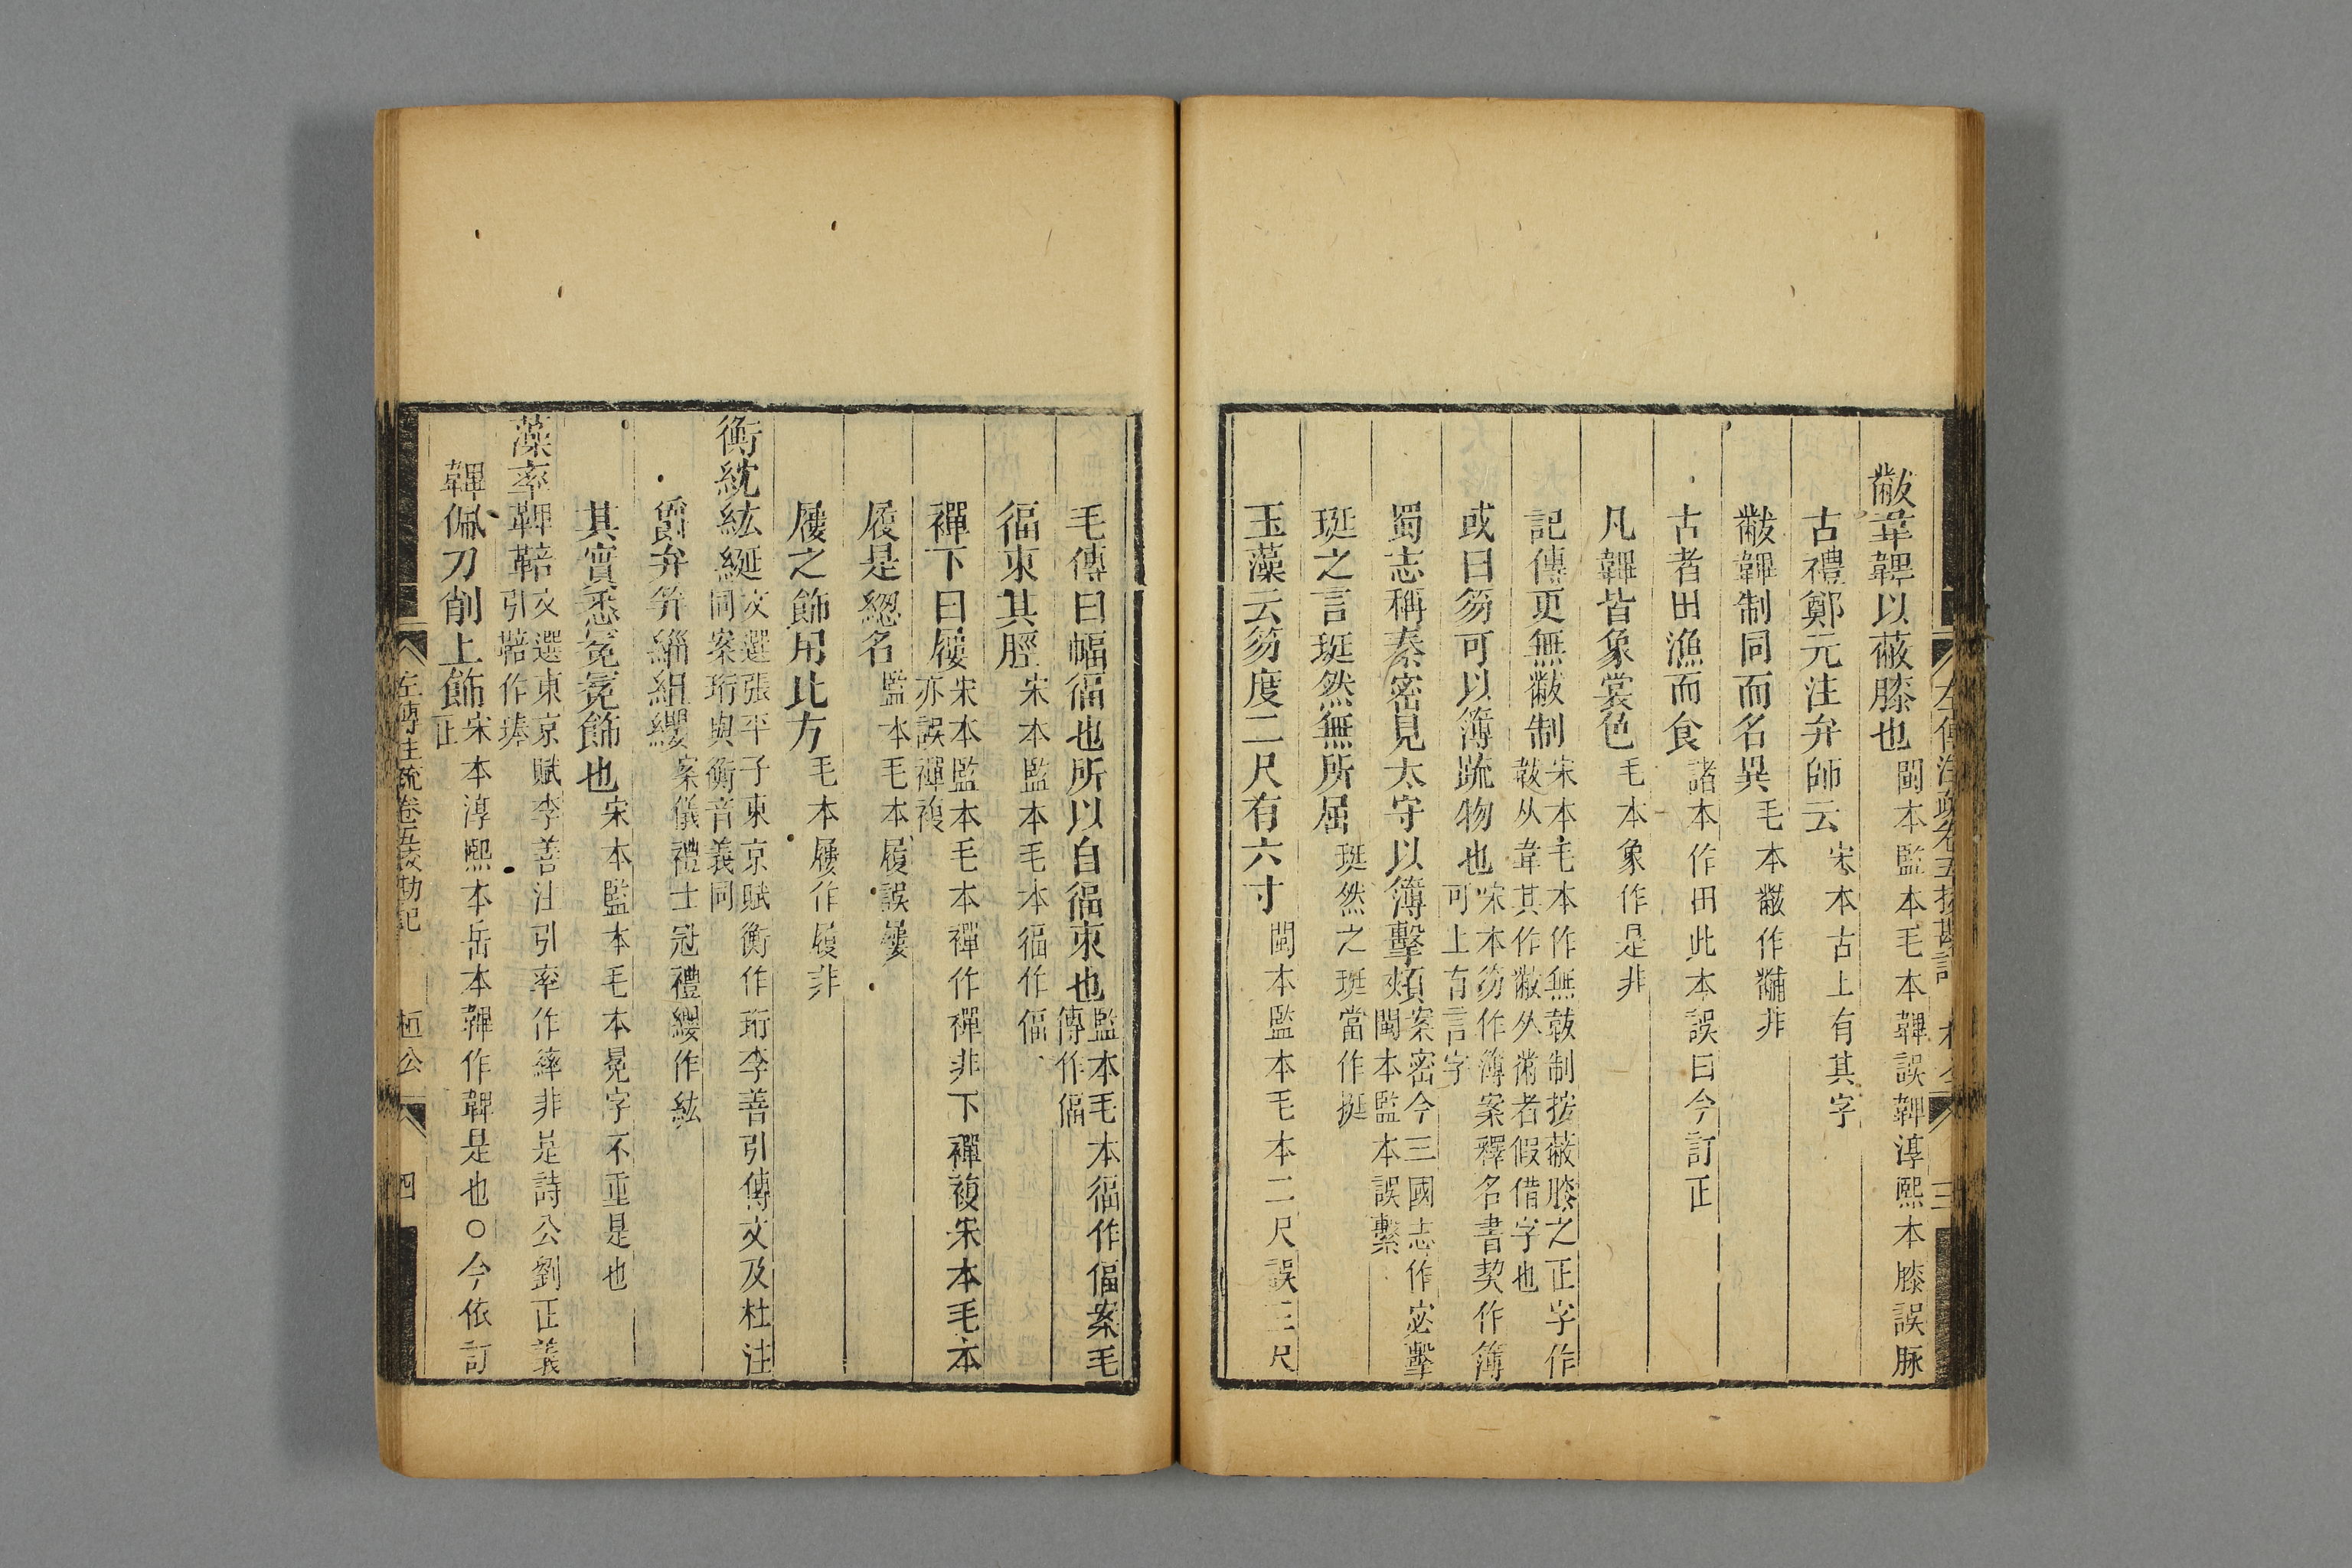 黻韋鞸以蔽膝也閩本監本毛本鞸誤鞞淳熙本膝誤脉
古禮鄭元注弁師云宋本古上有其字
黻韠制同而名異毛本黻作黼非
古者田漁而食諸本作田此本誤曰今訂正
凡韠皆象裳色毛本象作是非
記傳更無黻制宋本毛本作無韍制按蔽膝之正字作
韍从韋其作黻外黹者假借字也
或曰笏可以簿疏物也宋本笏作簿案釋名書契作簿
可上有言字
蜀志稱秦密見太守以簿擊頰案密今三國志作宓擊
閩本監本誤繫
珽之言珽然無所屈珽然之珽當作挺
玉藻云笏度二尺有六寸閩本監本毛本二尺誤三尺
左傳注疏卷五挍勘記 三
毛傳曰幅偪也所以自偪束也監本毛本偪作偪案毛
傳作偪
偪束其脛宋本監本毛本偪作偪
襌下曰屨宋本監本毛本襌作禪非下襌複宋本毛本
亦誤禪複
履是緫名監本毛本履誤屨
屨之飾用此方毛本屨作履非
衡紞紘綖文選張平子東京賦衡作珩李善引傳文及杜注
同案珩與衡音義同
爵弁笄緇組纓案儀禮士冠禮纓作紘
其實悉冕冕飾也宋本監本毛本冕字不重是也
藻率鞞鞛文選東京賦李善注引率作繂非是詩公劉正義
引鞛作琫
鞸佩刀削上飾宋本淳熙本岳本鞸作鞞是也○今依訂
正
左傳注疏卷五挍勘記 桓公 四